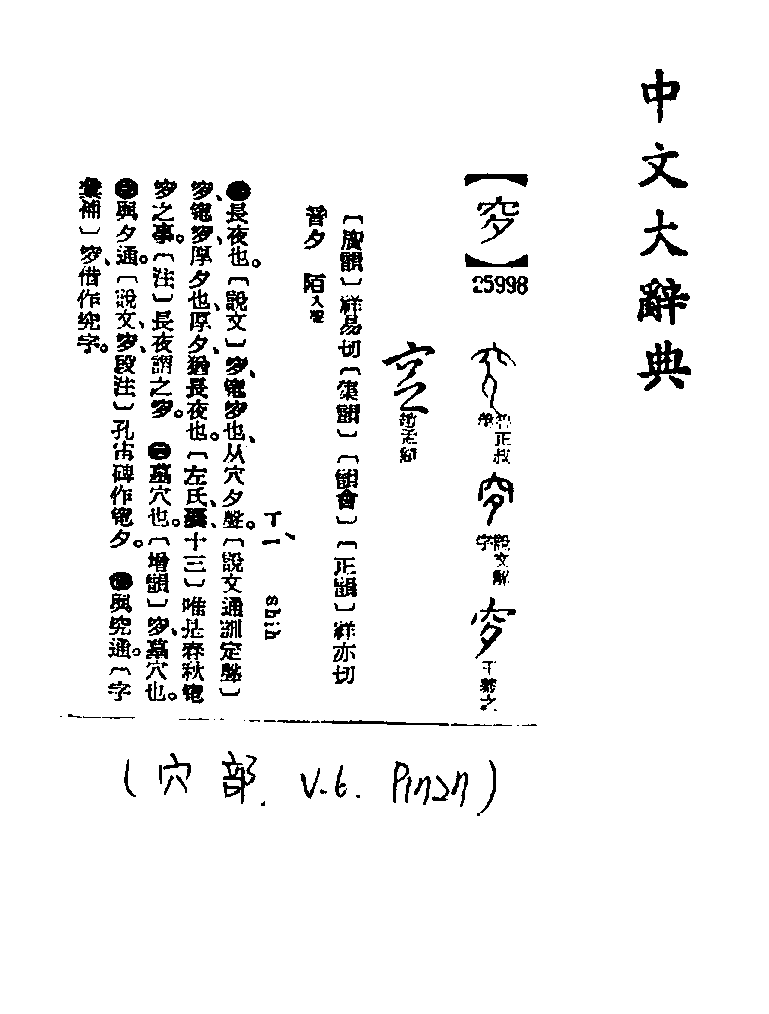 中文大辭典
【穸】
25998
穸
說文解字
穸
王羲之
趙孟頫
〔廣韻〕祥易切〔集韻〕〔韻會〕〔正韻〕祥亦切
音夕 陌入聲
ㄒㄧˋ shih
㊀長夜也。〔說文〕穸、窀穸也、从穴夕聲。〔說文通訓定聲〕
穸、窀穸、厚夕也、厚夕、猶長夜也。〔左氏、襄、十三〕唯是春秋窀
穸之事。〔注〕長夜謂之穸。㊁墓穴也。〔增韻〕穸、墓穴也。
㊂與夕通。〔說文、穸、段注〕孔宙碑作窀夕。㊃與究通。〔字
彙補〕穸、借作究字。
(穴部. V.6.